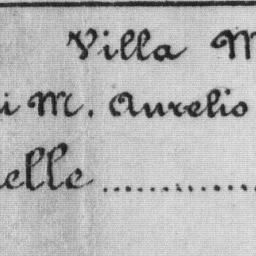 Villa M
i M. Aurelio
elle ............